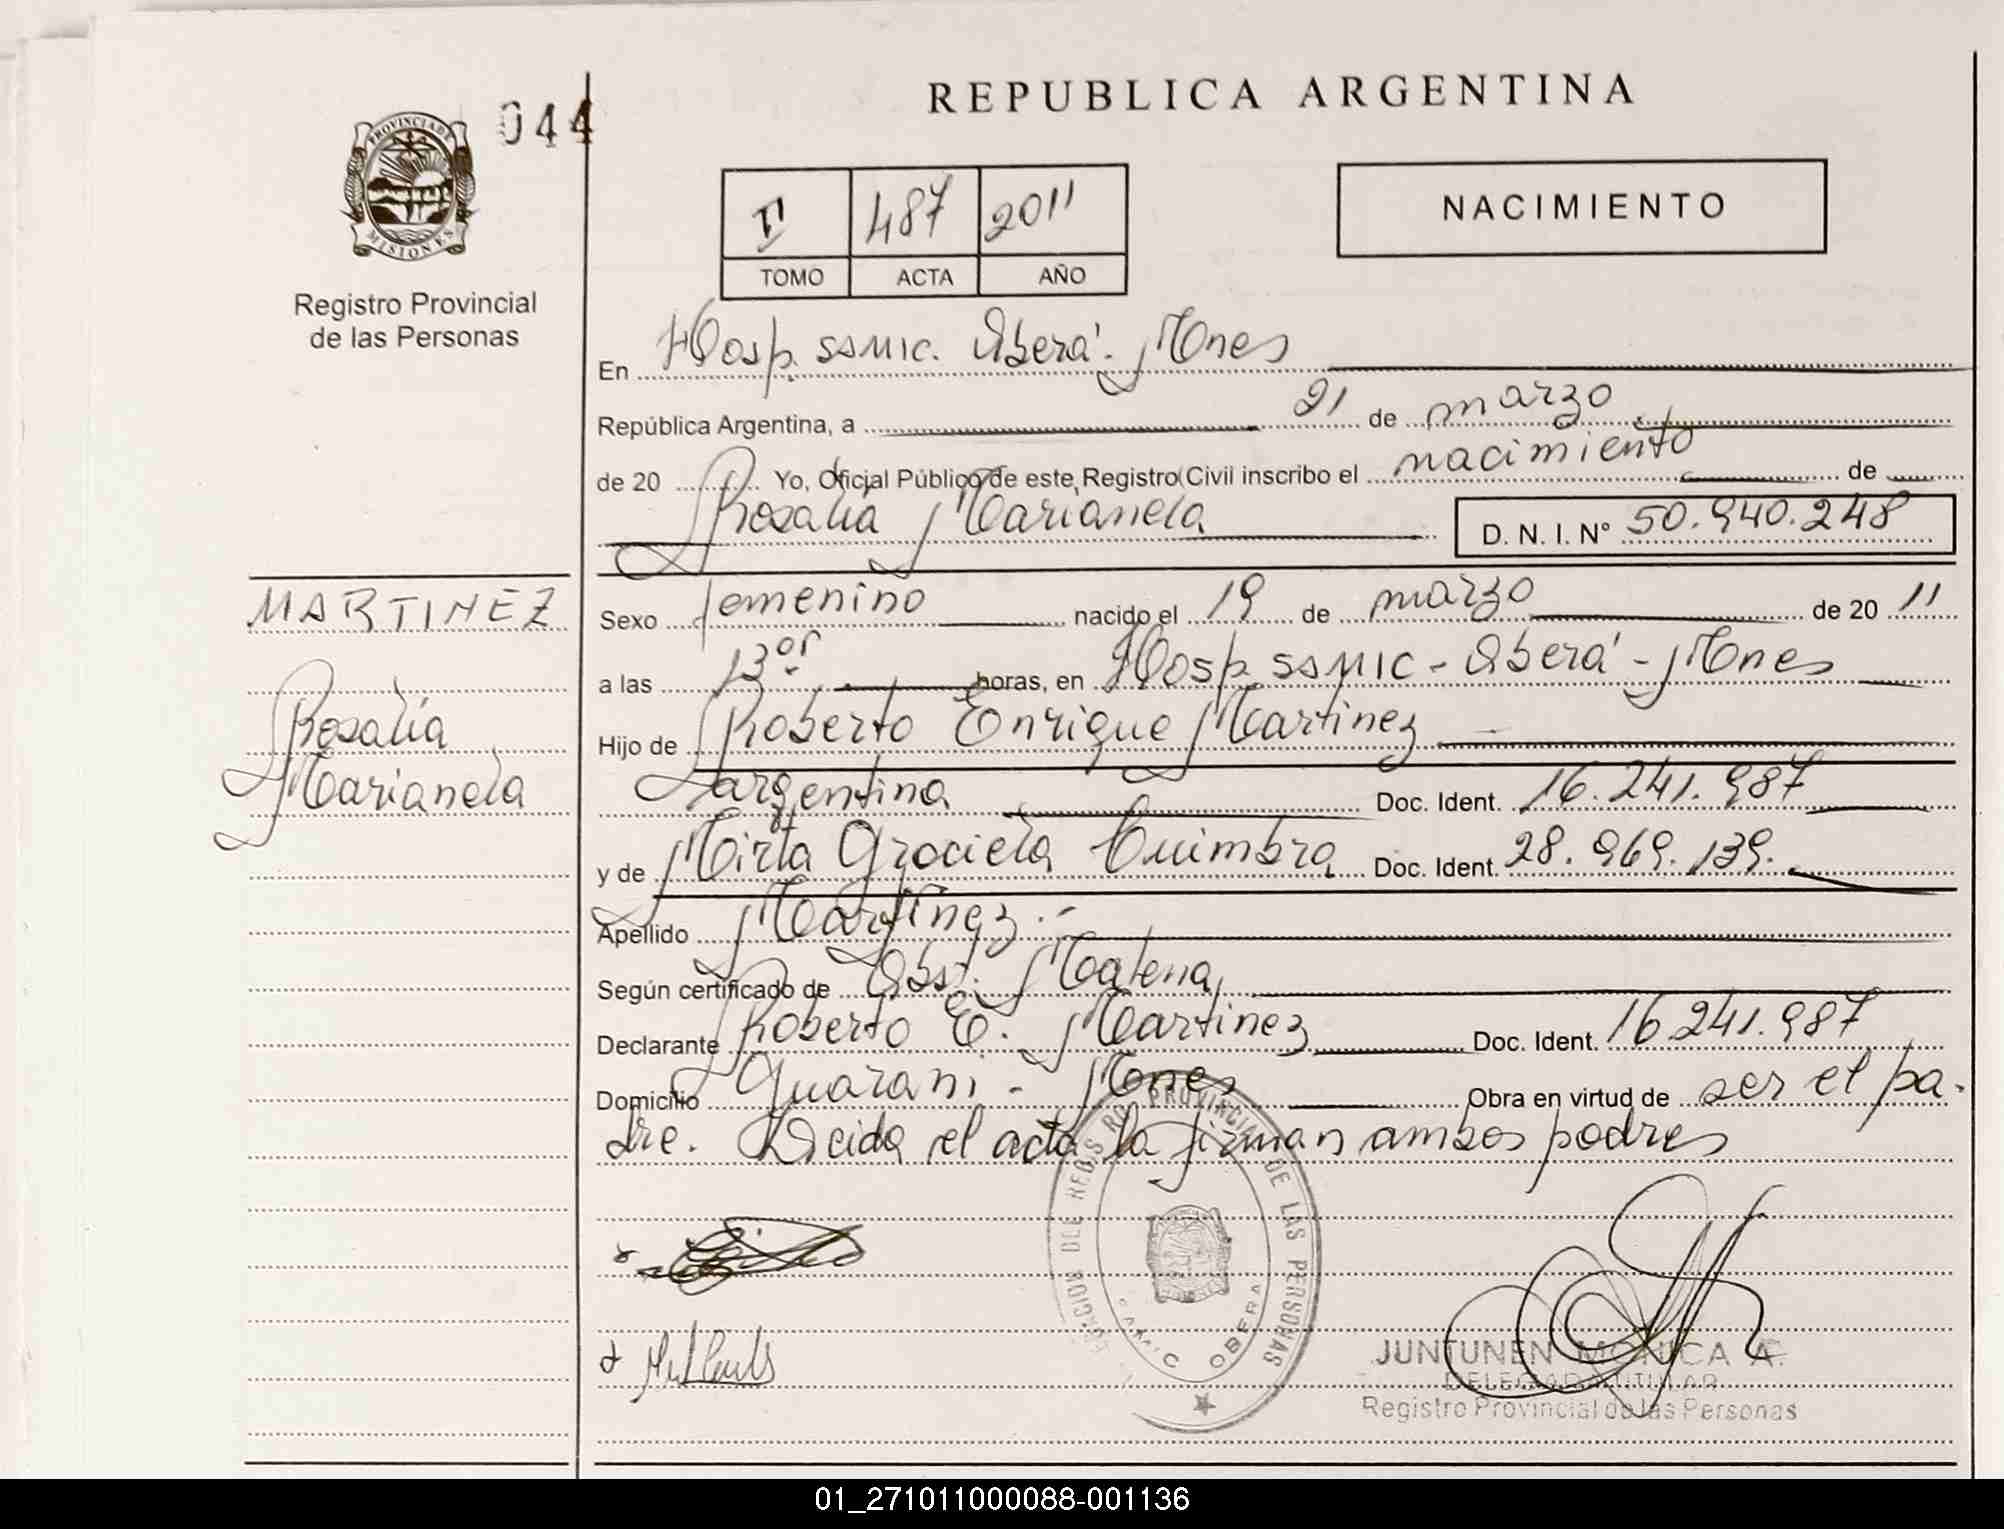 044
REPUBLICA ARGENTINA
PROVINCIA DE
MISIONES
Registro Provincial
de las Personas
487 2011
TOMO ACTA AÑO
NACIMIENTO
En Hosp. SSMIC. Oberá. Mnes
República Argentina, a 21 de marzo
de 20 Yo, Oficial Público de este Registro Civil inscribo el nacimiento de
Rosalía Marianela D. N. I. N° 50.940.248
MARTINEZ
Rosalía
Marianela
Sexo femenino nacido el 19 de marzo de 20 11
a las 13 horas, en Hosp. SSMIC - Oberá - Mnes
Hijo de Roberto Enrique Martinez
argentina Doc. Ident. 16.241.987
y de Mirta Graciela Cuimbra Doc. Ident. 28.969.139.
Apellido Martinez.-
Según certificado de Obst. Malena
Declarante Roberto E. Martinez Doc. Ident. 16.241.987
Domicilio Guaraní - Mnes Obra en virtud de ser el pa-
dre. Leida el acta la firman ambos padres
PROVINCIAL DE LAS PERSONAS
OBERA
JUNTUNEN MONICA A.
DELEGADA TITULAR
Registro Provincial de las Personas
01_271011000088-001136